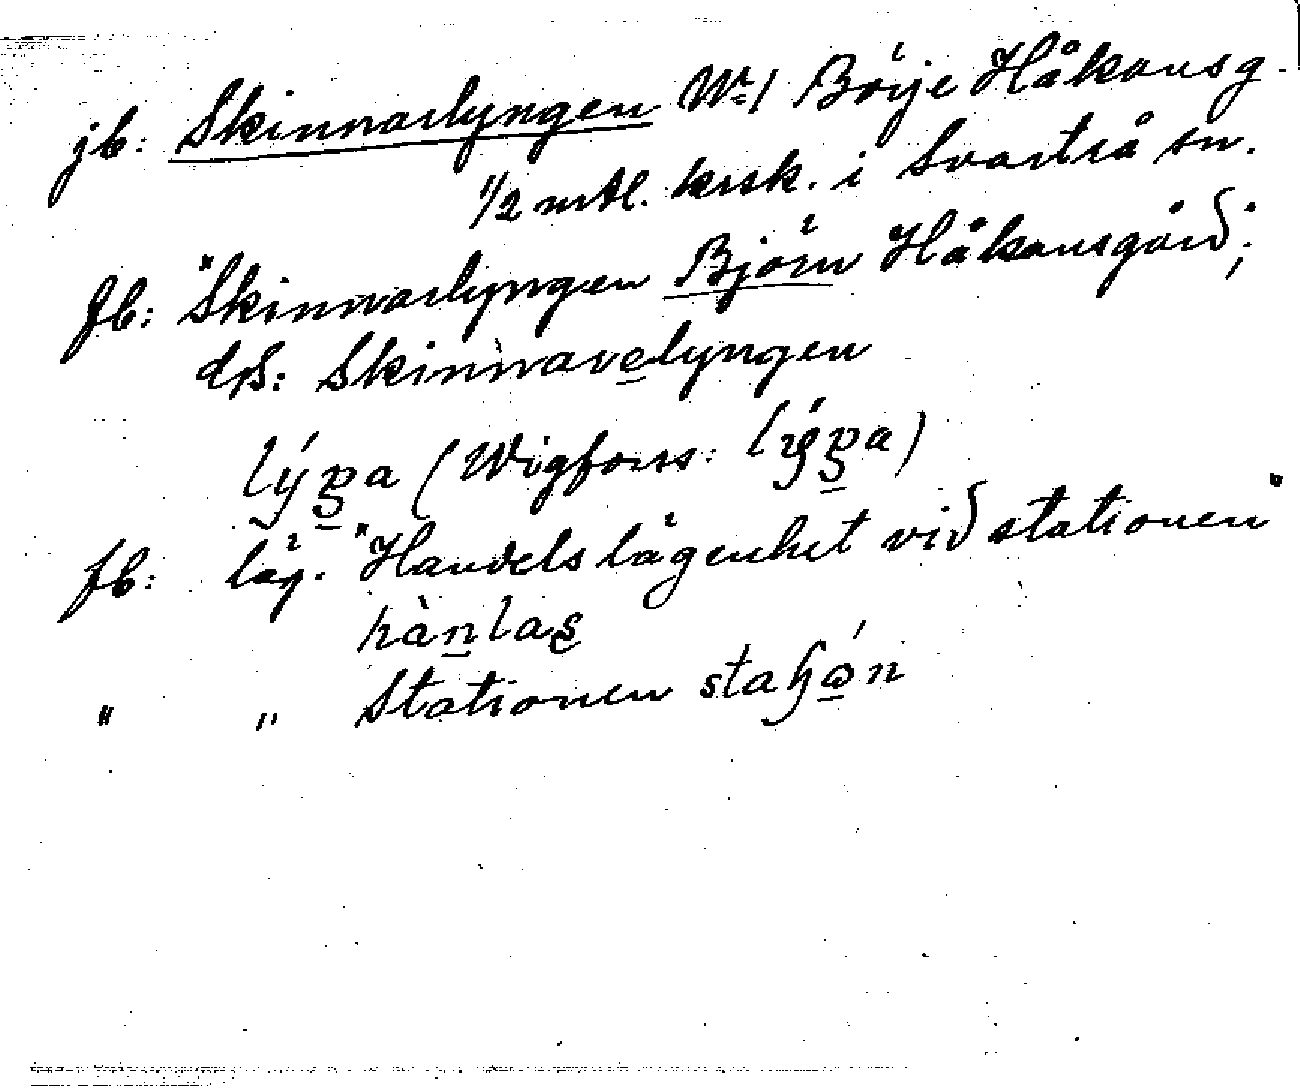 jb: Skinnarlyngen Nr 1 Börje Håkansg.
1/2 mtl. krsk. i Svartrå sn.
fb: "Skinnarlyngen Björn Håkansgård;
dss: Skinnavelyngen
lýŋa (Wigforss: lýŋa)
fb: läg. "Handelslägenhet vid stationen"
hànlas
" " Stationen staɧón